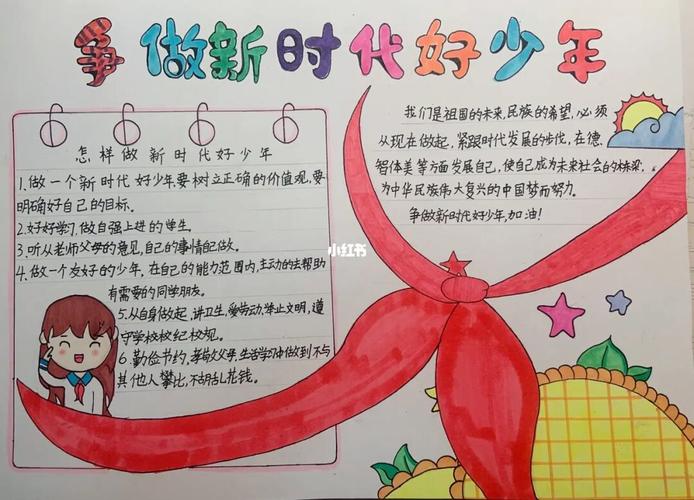 争做新时代好少年
怎样做新时代好少年
1.做一个新时代好少年要树立正确的价值观,要
明确好自己的目标。
2.好好学习,做自强上进的学生。
3.听从老师父母的意见,自己的事情自己做。
4.做一个友好的少年,在自己的能力范围内,主动的去帮助
有需要的同学朋友。
5.从自身做起,讲卫生,爱劳动,举止文明,遵
守学校校纪校规。
6.勤俭节约,孝敬父母,生活学习中做到不与
其他人攀比,不胡乱花钱。
我们是祖国的未来,民族的希望,必须
从现在做起,紧跟时代发展的步伐,在德、
智体美等方面发展自己,使自己成为未来社会的栋梁,
为中华民族伟大复兴的中国梦而努力。
争做新时代好少年,加油!
小红书